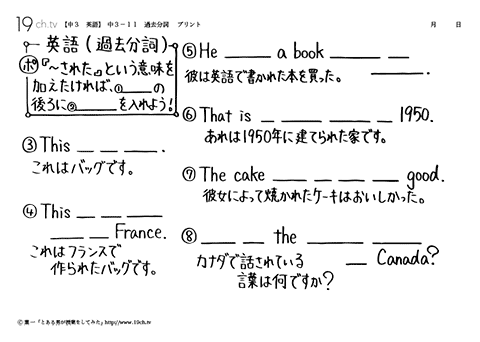 19ch.tv 【中3 英語】 中3-11 過去分詞 プリント 月 日
英語(過去分詞)
ポ『~された。』という意味を
加えたければ、①____の
後ろに②____を入れよう!
③ This __ __ ____.
これはバッグです。
④ This __ __ ____
____ __ France.
これはフランスで
作られたバッグです。
⑤ He ____ a book ____ __
____.
彼は英語で書かれた本を買った。
⑥ That is __ ____ ____ __ 1950.
あれは1950年に建てられた家です。
⑦ The cake ____ __ ____ ____ good.
彼女によって焼かれたケーキはおいしかった。
⑧ ____ __ the ____ ____
__ Canada?
カナダで話されている
言葉は何ですか?
© 葉一「とある男が授業をしてみた」http://www.19ch.tv